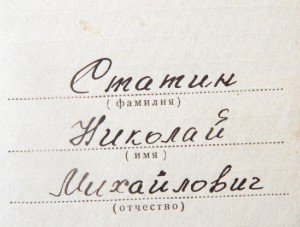 Статин
(фамилия)
Николай
(имя)
Михайлович
(отчество)